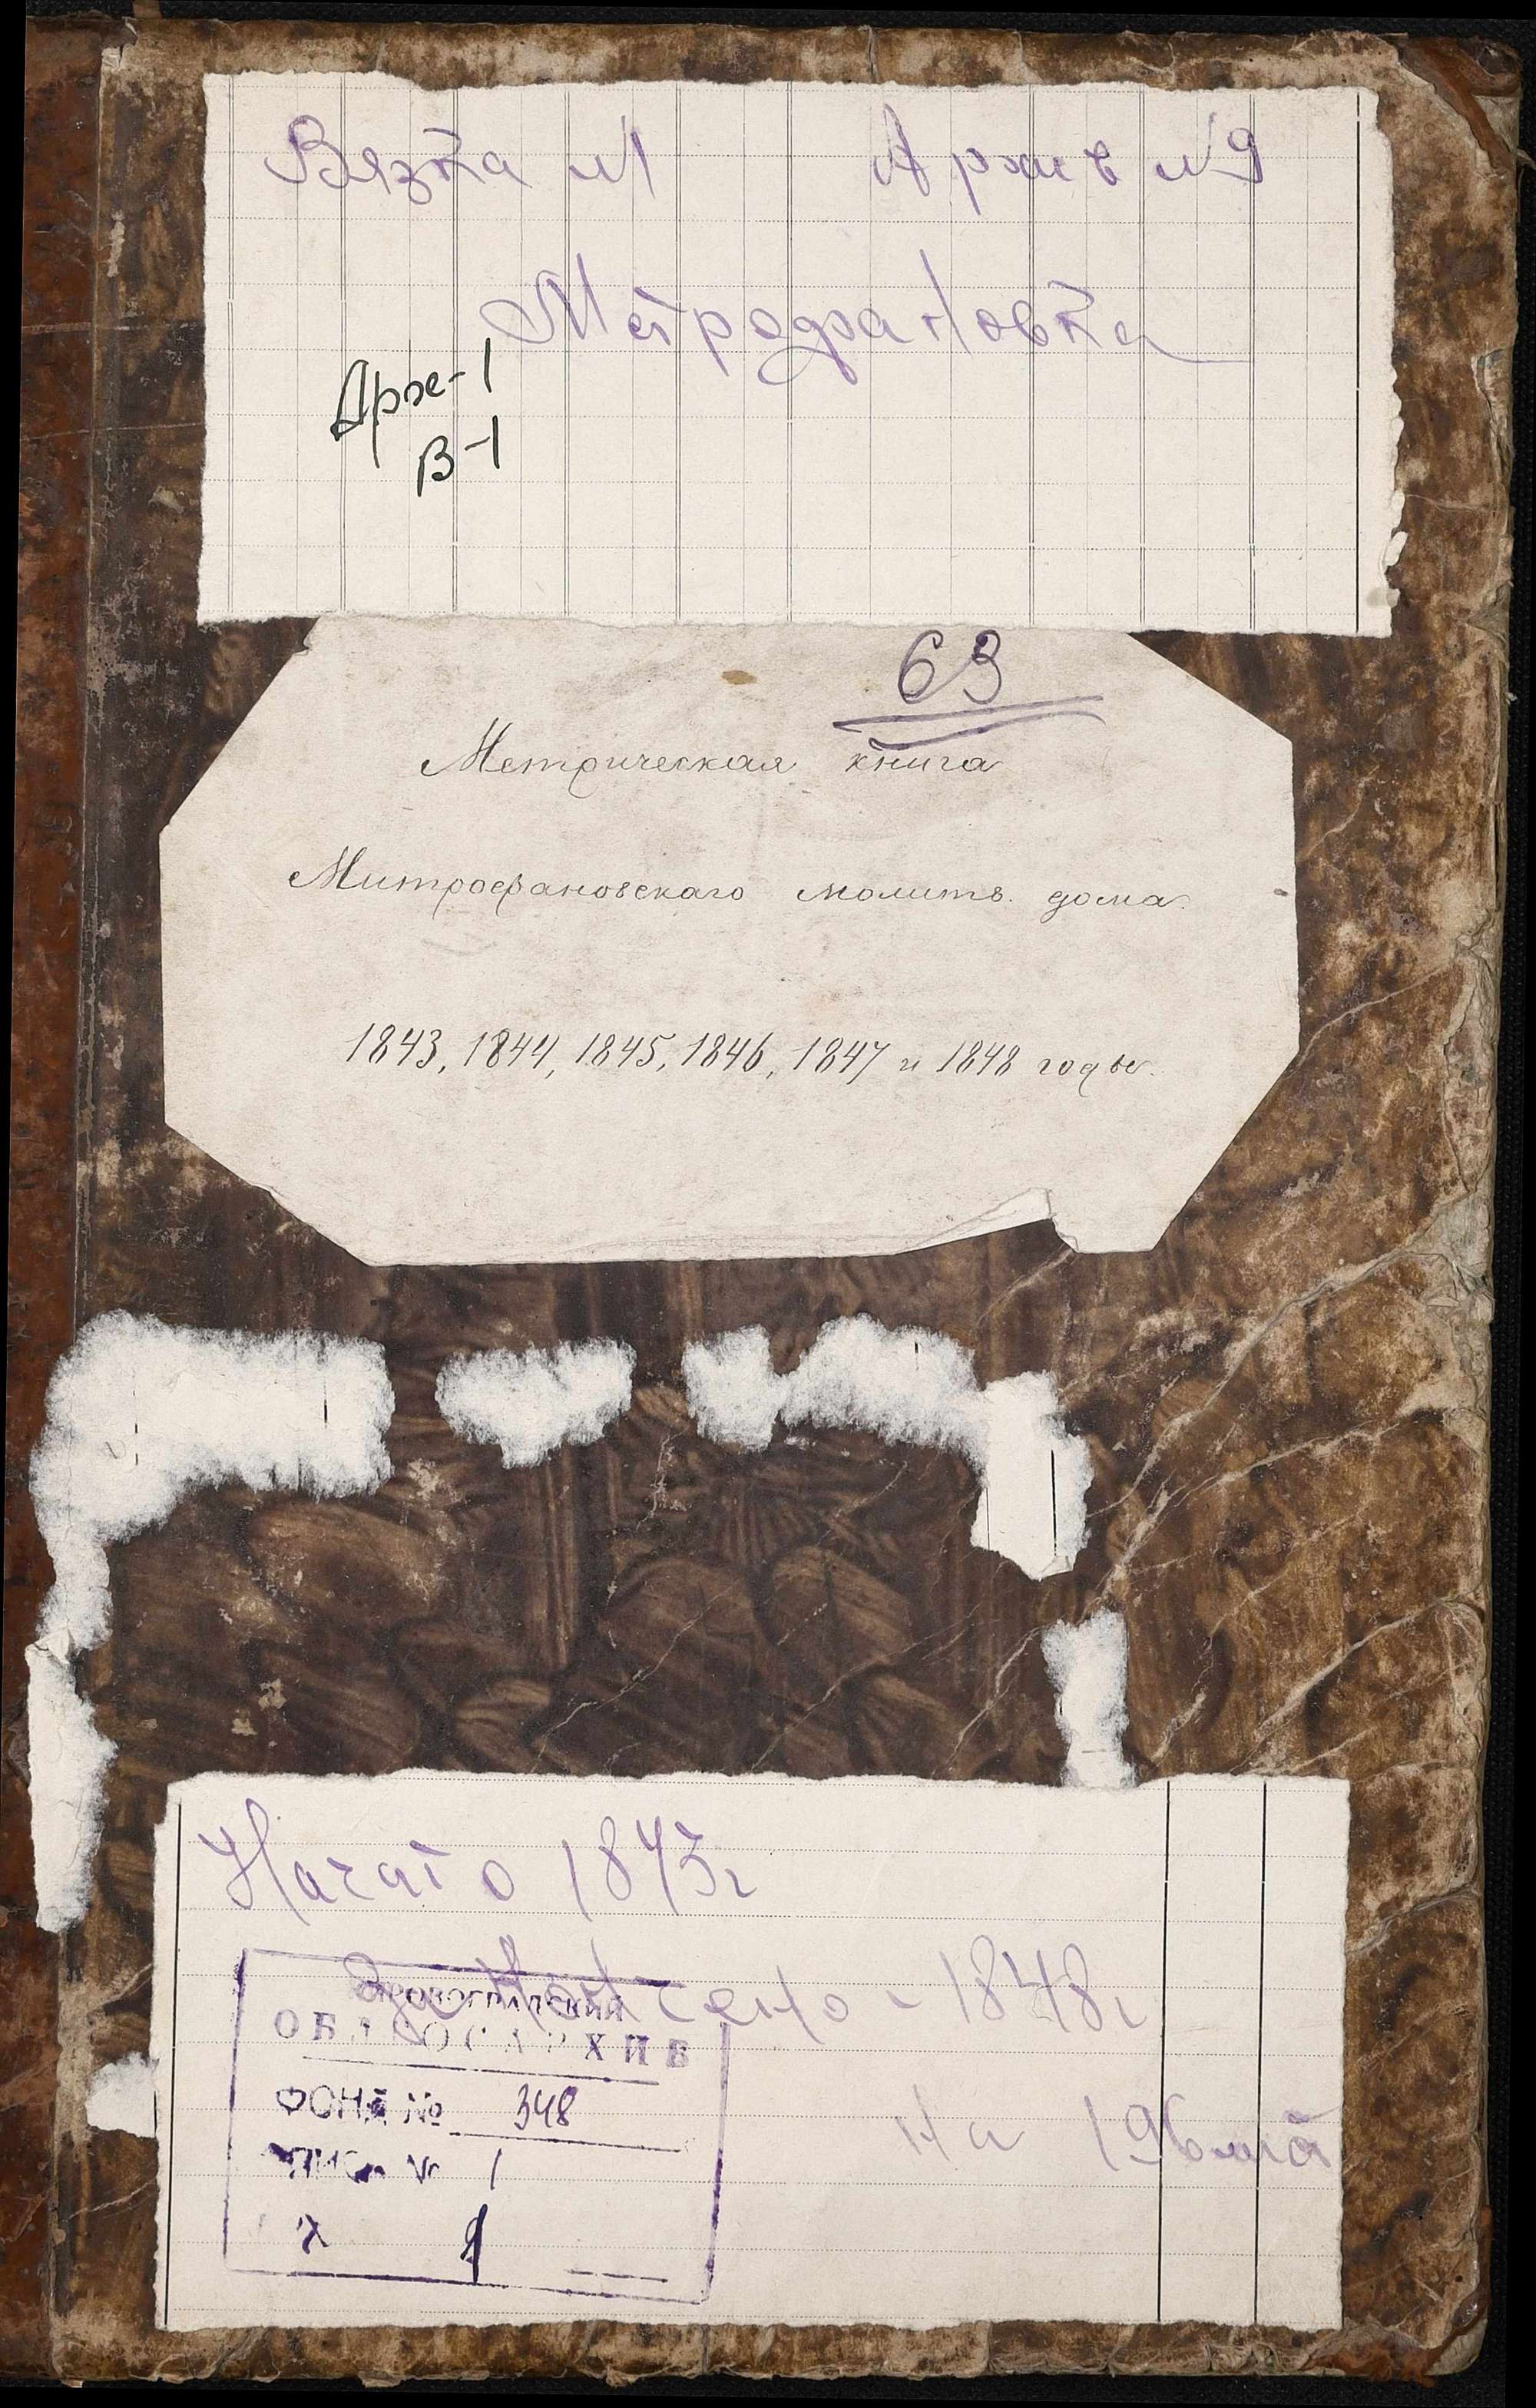 Вязка №1 Архив №9
Метрофановка
Арх-1
В-1
63
Метрическая книга
Митрофановскаго молитв. дома.
1843, 1844, 1845, 1846, 1847 и 1848 годы.
Начато 1843г
Закончено - 1848г
ОБЛГОСАРХИВ
ФОНД № 348
ОПИСЬ № 1
На 196